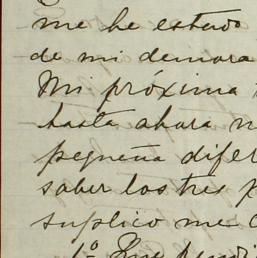 me he estado
de mi demora
Mi próxima
hasta ahora
pequeña difer
saber los tres p
suplico me
1º Que